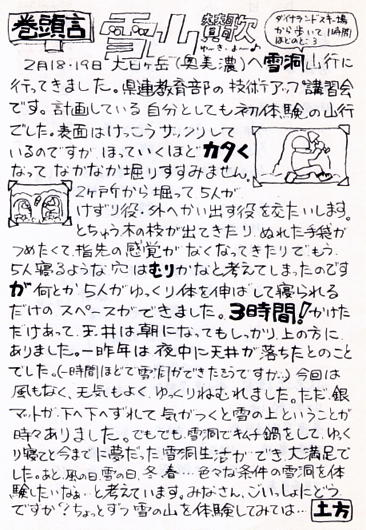 巻頭言
雪山讃歌
ゆーき・よー♪
ダイナランドスキー場
から歩いて1時間
ほどのところ
2月18・19日 大日ヶ岳(奥美濃)へ雪洞山行に
行ってきました。県連教育部の技術アップ講習会
です。計画している自分としても初体験の山行
でした。表面はけっこうサックリして
いるのですが、ほっていくほどカタく
なって、なかなか堀りすすみません。
2ヶ所から堀って5人が
けずり役、外へかい出す役を交たいします。
とちゅう木の枝が出てきたり、ぬれた手袋が
つめたくて、指先の感覚がなくなってきたりでもう、
5人寝るような穴はむりかなと考えてしまったのです
が何とか5人がゆっくり体を伸ばして寝られる
だけのスペースができました。3時間!かけた
だけあって、天井は朝になってもしっかり、上の方に
ありました。一昨年は夜中に天井が落ちたとのこと
でした。(一時間ほどで雪洞ができたそうですが…)今回は
風もなく、天気もよく、ゆっくりねむれました。ただ、銀
マットが、下へ下へずれて気がつくと雪の上ということが
時々ありました。でもでも、雪洞でキムチ鍋をして、ゆっく
り寝てと今までに夢だった雪洞生活ができ大満足で
した。あと、風の日、雪の日、冬、春…色々な条件の雪洞を体
験したいなぁ…と考えています。みなさん、ごいっしょにどう
ですか?ちょっとずつ雪の山を体験してみては…
土方